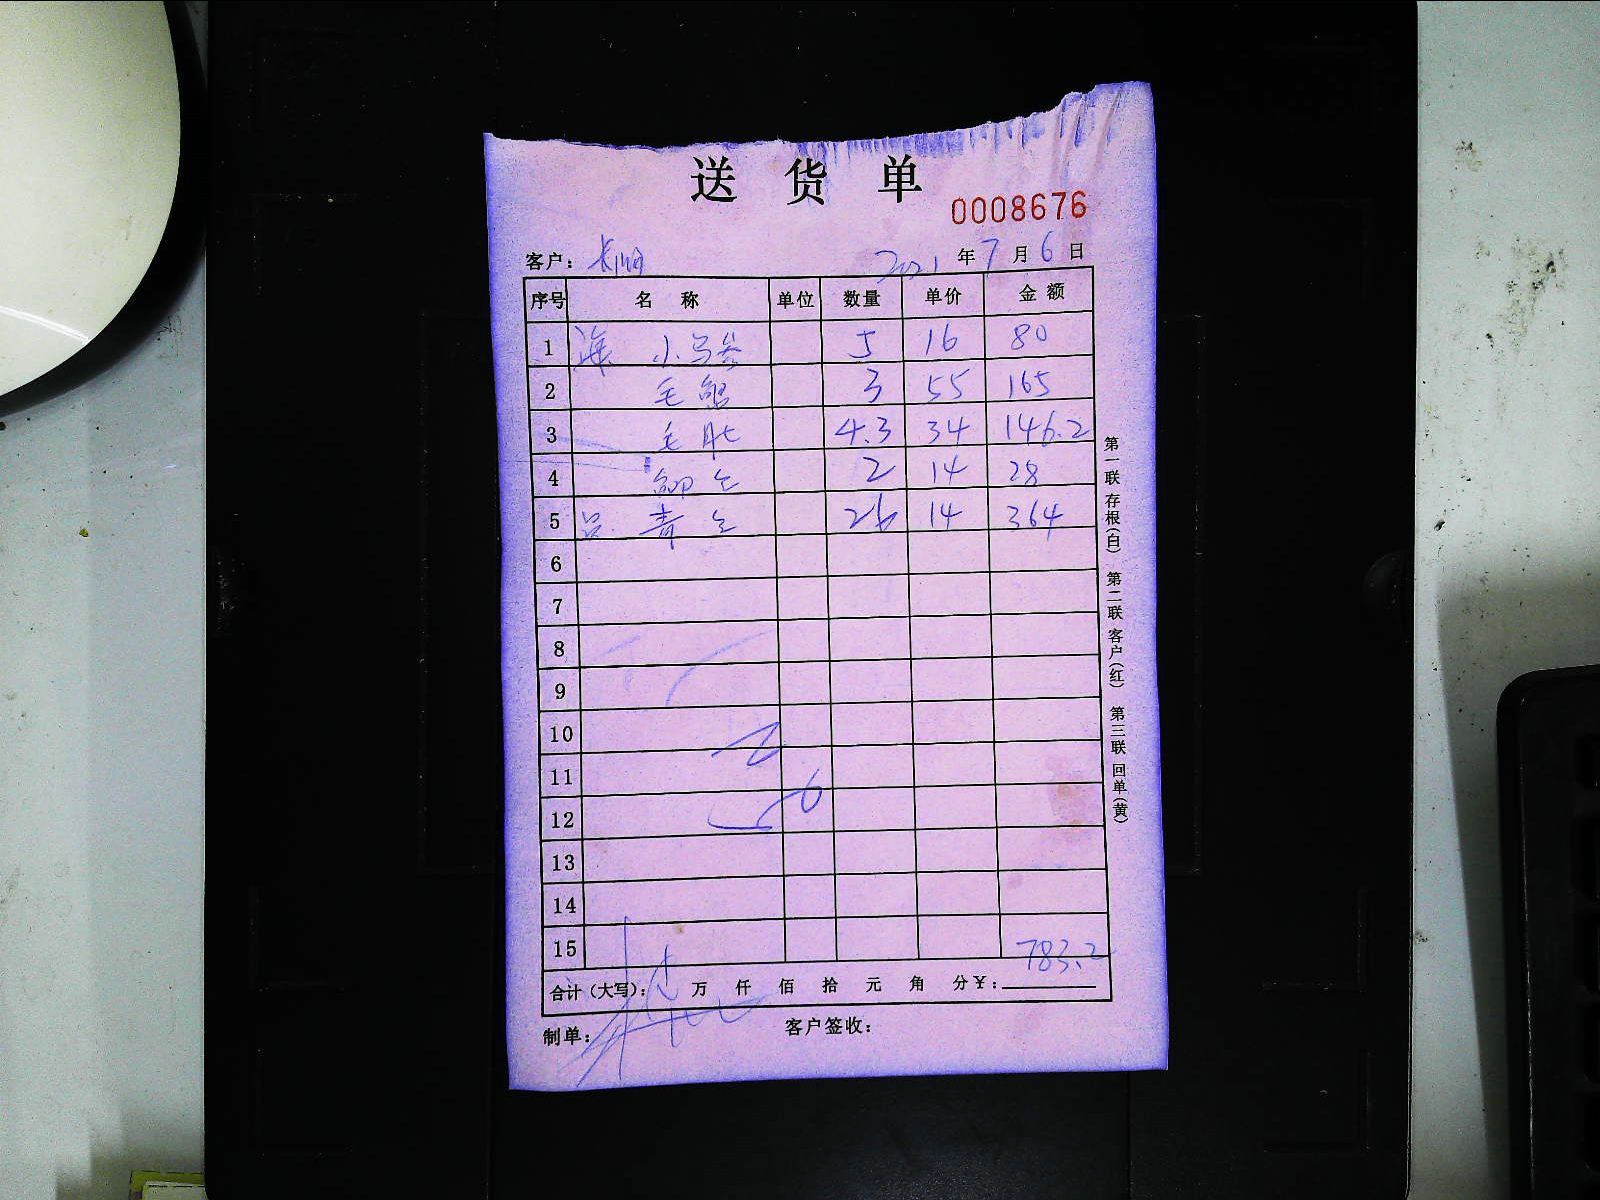 送 货 单
0008676
客户： 2021 年 7 月 6 日
序号 名 称 单位 数量 单价 金额
1 海 小乌 5 16 80
2 毛 3 55 165
3 毛肚 4.3 34 146.2
4 2 14 28
5 青 26 14 364
6
7
8
9
10
11
12
13
14
15 783.2
合计（大写）： 万 仟 佰 拾 元 角 分￥：
制单： 客户签收：
第一联 存根（白） 第二联 客户（红） 第三联 回单（黄）